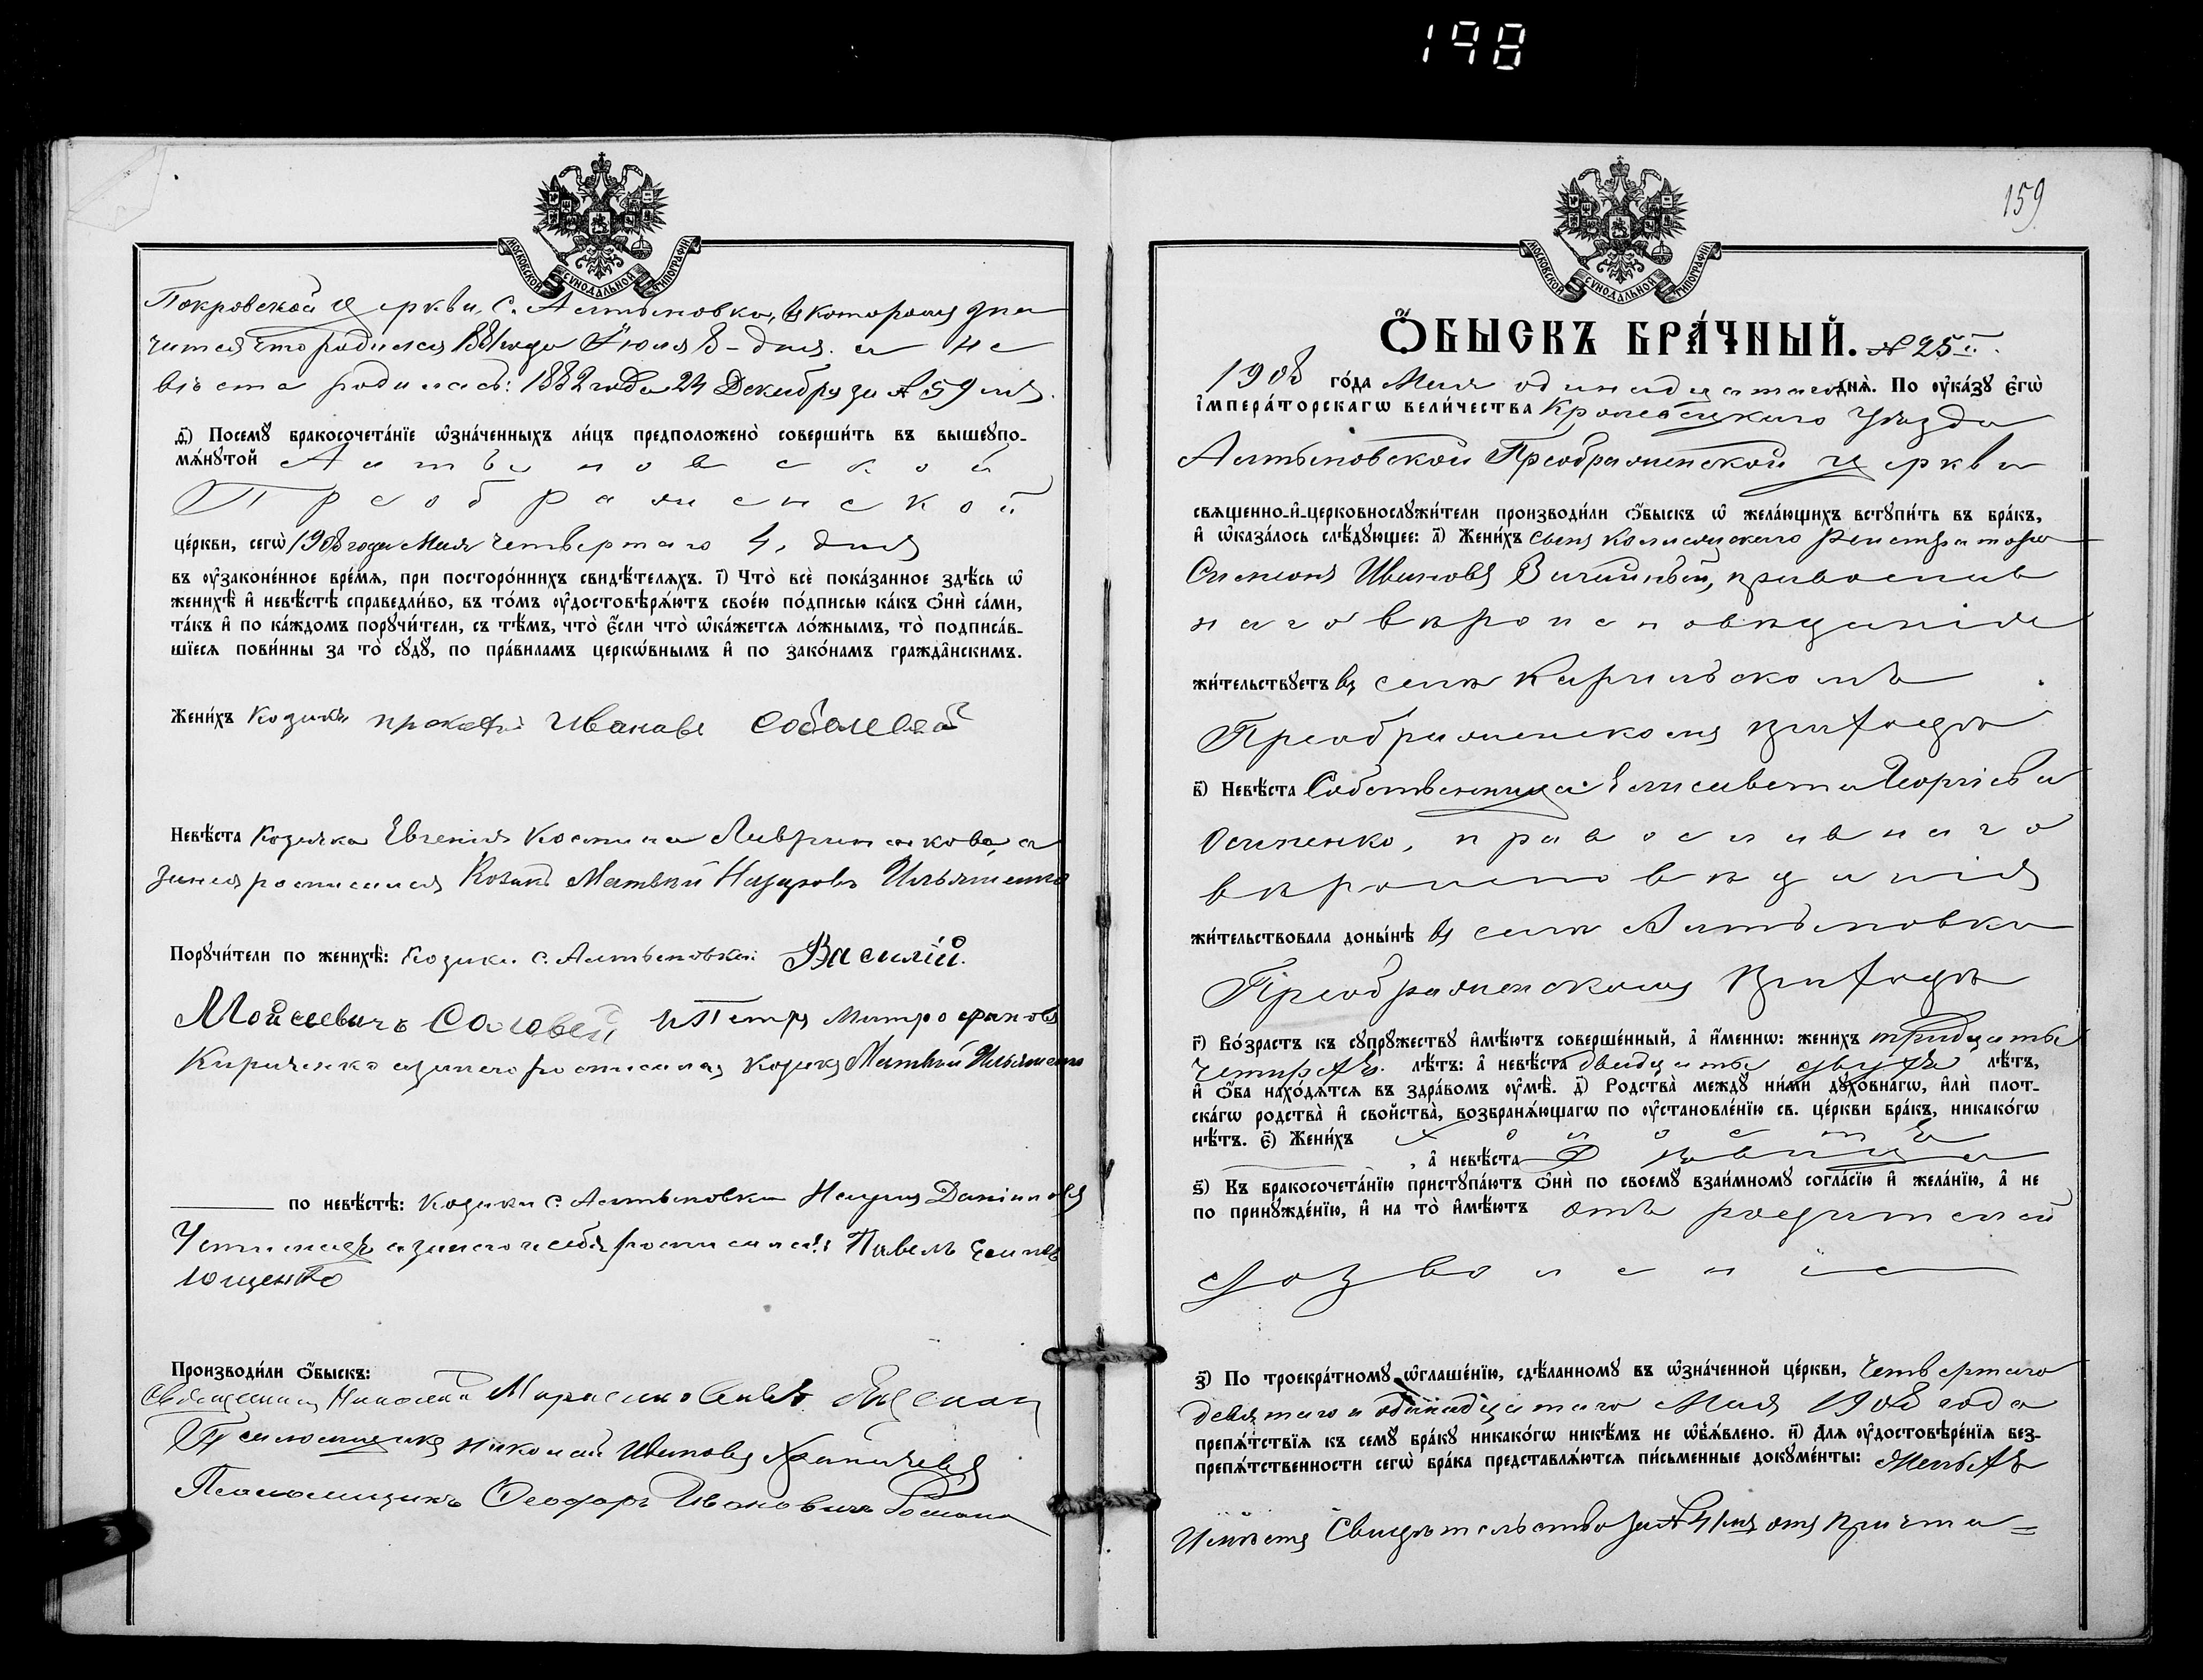 198
МОСКОВСКОЙ СѴНОДАЛЬНОЙ ТИПОГРАФІИ
Покровской церкви, с. Алтыновки, въ которомъ зна
чится что родился 1881 года Іюля 8 - дня. а не
вѣста родилась: 1882 года 24 Декабря за № 59 мъ.
д҃і) Посемꙋ бракосочета́нїе ѡ҆зна́ченныхъ ли́цъ предположено̀ соверши́ть въ вышеꙋпо-
мѧ́нꙋтой Алтыновской
Преображенской
це́ркви, сегѡ̀ 1908 года Мая четвертаго 4, дня
въ ᲂу҆зако́ненное вре́мѧ, при посторо́ннихъ свидѣ́телѧхъ. і҃) Что̀ всѐ пока́занное здѣ́сь ѡ҆
женихѣ̀ и҆ невѣ́стѣ справедли́во, въ то́мъ ᲂу҆достовѣрѧ́ютъ свое́ю по́дписью ка́къ ѻ҆нѝ са́ми,
та́къ и҆ по ка́ждомъ порꙋчи́тели, съ тѣ́мъ, что̀ є҆́сли что̀ ѡ҆ка́жетсѧ ло́жнымъ, то̀ подписа́в-
шїесѧ пови́нны за то̀ сꙋдꙋ̀, по пра́виламъ церко́внымъ и҆ по зако́намъ гражда̑нскимъ.
Жени́хъ Козакъ Прокофій Ивановъ Соболевъ
Невѣ́ста Козачка Евгенія Косьмина а
за нея росписался Козакъ Матвѣй Назаровъ Ильяшенко
Порꙋчи́тели по женихѣ̀: Козаки с. Алтыновки: Василій
Мойсеевичъ Соловей и Петръ Митрофановъ
Кириченко а за него росписался козакъ Матвѣй Ильяшенко
по невѣ́стѣ: Козаки с. Алтыновки Наумъ Даніиловъ
а за него и себя росписался: Павелъ
Ющенко
Производи́ли ѻ҆́быскъ:
Священникъ Николай
Псаломщикъ Николай Ивановъ
Псаломщикъ Ѳеодоръ Ивановичъ
159
МОСКОВСКОЙ СѴНОДАЛЬНОЙ ТИПОГРАФІИ
Ѻ҆́БЫСКЪ БРА́ЧНЫЙ. № 25й.
1908 го́да Мая одинадцатаго днѧ̀. По ᲂу҆ка́зꙋ є҆гѡ̀
і҆мпера́торскагѡ вели́чества Кролевецкаго уѣзда
Алтыновской Преображенской церкви
свѧще́нно-и҆-церковнослꙋжи́тели производи́ли ѻ҆́быскъ ѡ҆ жела́ющихъ встꙋпи́ть въ бра́къ,
и҆ ѡ҆каза́лось слѣ́дꙋющее: а҃) Жени́хъ сынъ Коллежскаго Регистратора
Симеонъ Ивановъ православ
наго вѣроисповѣданія
жи́тельствꙋетъ въ селѣ Карыльскомъ
Преображенскомъ приходѣ
в҃) Невѣ́ста Собственница Елисавета Георгіева
Осипенко, православнаго
вѣроисповѣданія
жи́тельствовала доны́нѣ въ селѣ Алтыновки
Преображенскомъ приходѣ
г҃) Во́зрастъ къ сꙋпрꙋ́жествꙋ и҆мѣ́ютъ соверше́нный, а҆ и҆́меннѡ: жени́хъ тридцать
четырехъ. лѣ́тъ: а҆ невѣ́ста двадцать двухъ лѣ́тъ,
и҆ ѻ҆́ба нахо́дѧтсѧ въ здра́вомъ ᲂу҆мѣ̀. д҃) Родства̀ междꙋ̀ ни́ми дꙋхо́внагѡ, и҆лѝ плот-
ска́гѡ родства̀ и҆ свойства̀, возбранѧ́ющагѡ по ᲂу҆становле́нїю св. це́ркви бра́къ, никако́гѡ
нѣ́тъ. є҃) Жени́хъ холостъ
, а҆ невѣ́ста дѣвица
ѕ҃) Къ бракосочета́нїю пристꙋпа́ютъ ѻ҆нѝ по своемꙋ̀ взаи́мномꙋ согла́сїю и҆ жела́нїю, а҆ не
по принꙋжде́нїю, и҆ на то̀ и҆мѣ́ютъ отъ родителей
дозволеніе
з҃) По троекра́тномꙋ ѡ҆глаше́нїю, сдѣ́ланномꙋ въ ѡ҆зна́ченной це́ркви, четвертаго
девятаго и одинадцатаго Мая 1908 года
препѧ́тствїѧ къ семꙋ̀ бра́кꙋ никако́гѡ никѣ́мъ не ѡ҆б̾ѧ́влено. и҃) Длѧ ᲂу҆достовѣре́нїѧ без-
препѧ́тственности сегѡ̀ бра́ка представлѧ́ютсѧ пи́сьменные докꙋме́нты: Женихъ
имѣетъ Свидѣтельство за № 41мъ отъ причта=